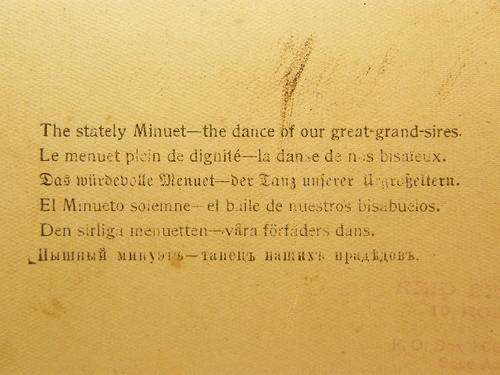 The stately Minuet—the dance of our great-grand-sires.
Le menuet plein de dignité—la danse de nos bisaïeux.
Das würdevolle Menuet—der Tanz unserer Urgroßeltern.
El Minueto solemne—el baile de nuestros bisabuelos.
Den sirliga menuetten—våra förfäders dans.
Пышный минуэтъ—танецъ нашихъ прадѣдовъ.